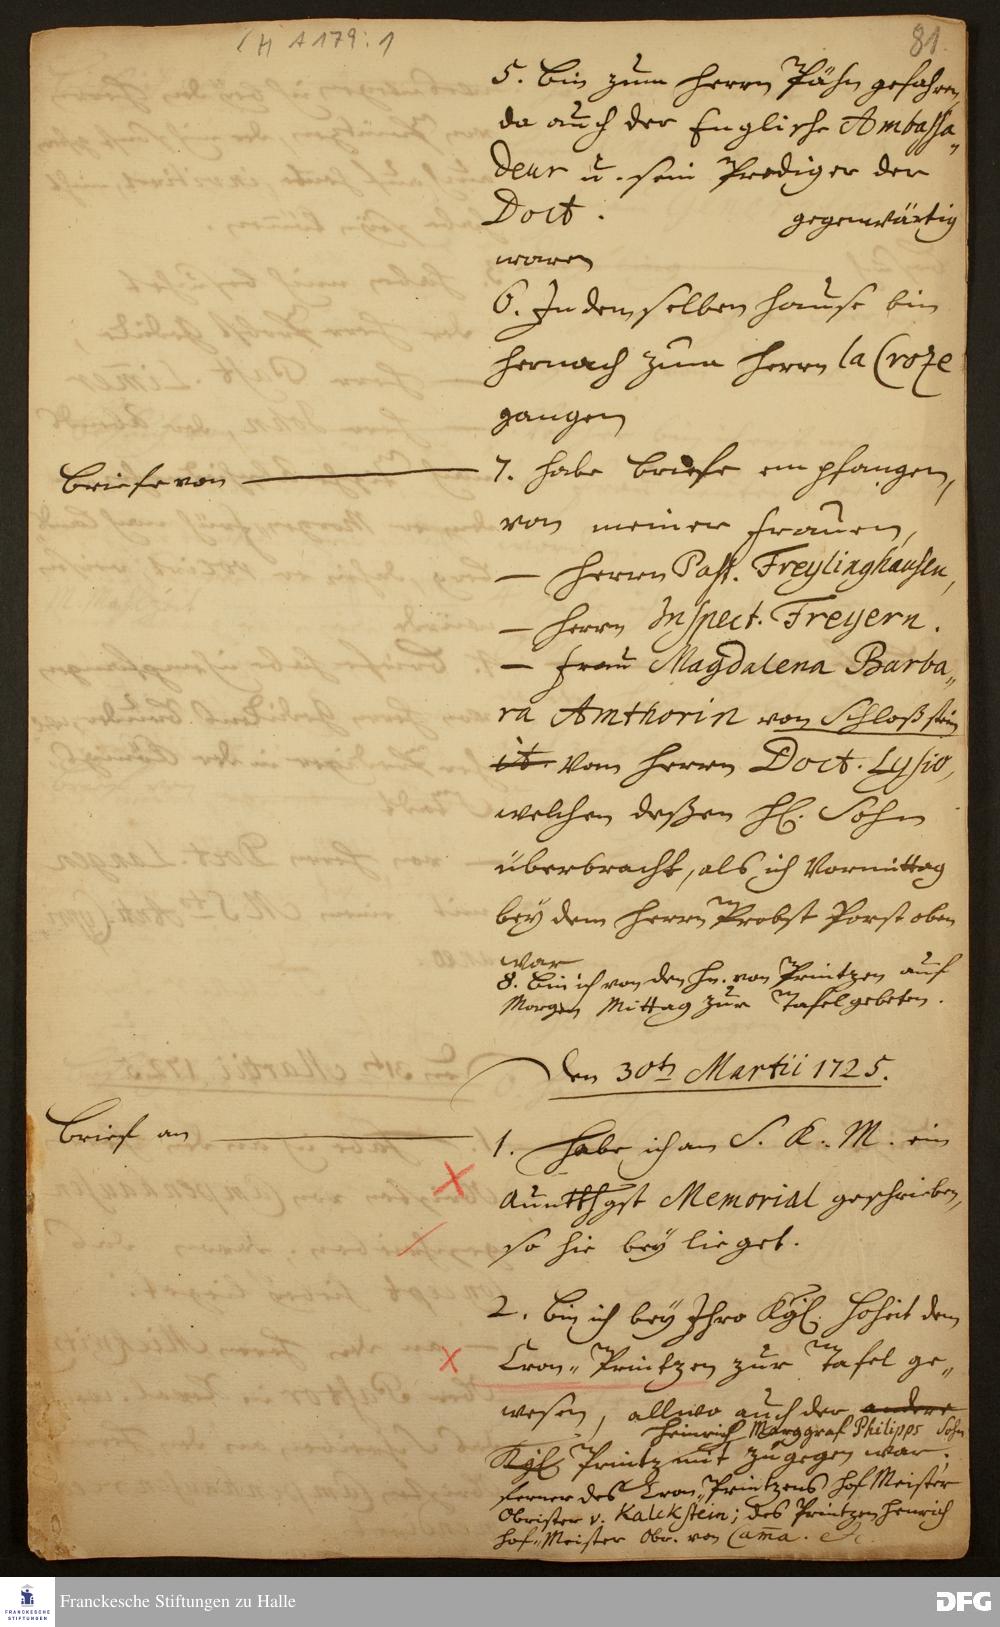 H A 179:1
81.
5. bin zum Herrn Pähn gefahren,
da auch der Englische Ambassa„
deur u. sein Prediger der
Doct. gegenwärtig
waren
6. In demselben Hause bin
hernach zum Herrn la Croze
gangen
Briefe von —— 7. habe briefe empfangen,
von meiner Frauen,
— Herrn Past. Freylinghausen,
— Herrn Inspect. Freyern.
— Frau Magdalena Barba„
ra Amthorin von Schloß stein
it. vom Herrn Doct. Lysio,
welchen deßen H. Sohn
überbracht, als ich Vormittag
bey dem Herrn Probst Porst oben
war
8. bin ich von den Hn. von Printzen auf
Morgen Mittag zur Tafel gebeten.
den 30ten Martii 1725.
Brief an —— 1. Habe ich an S. K. M. ein
Memorial geschrieben,
so hie bey lieget.
2. bin ich bey Ihro Kgl. Hoheit dem
Cron„ Printzen zur Tafel ge„
wesen, allwo auch der andere
Heinrich Marggraf Philipps Sohn
Kgl. Printz mit zugegen war;
ferner des Cron„Printzens Hof Meister
Obrister v. Kalckstein; des Printzen Henrich
Hof„Meister Obr. von Cama. &c.
Franckesche Stiftungen zu Halle
FRANCKESCHE
STIFTUNGEN
DFG